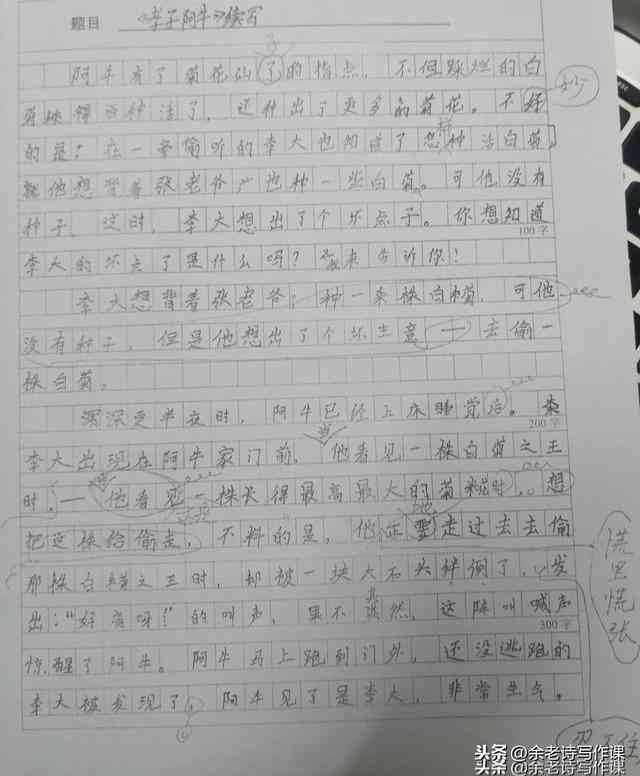 题目 《孝子阿牛》续写
阿牛有了菊花仙子的指点,不但踩烂的白
菊株得种活了,还种出了更多的菊花。不
妙
的是:在一旁偷听的李大也知道了怎样种活白菊,
他想背着张老爷广也种一些白菊。可他没有
种子,这时,李大想出了个坏点子。你想知道
100字
李大的坏点子是什么吗?我来告诉你!
李大想背着张老爷,种一株白菊,可他
没有种子,但是他想出了个坏主意——去偷一
株白菊。
深更半夜时,阿牛已经上床睡觉后。
200字
李大出现在阿牛家门前,他看见一株白菊之王
时,——他看见一株长得最高最大的菊时,想
把这株给偷走,不料的是,他正要走过去去偷
那株白菊之王时,却被一块大石头绊倒了,发
慌里慌张
出:“好疼呀!”的叫声,果不其然,这阵叫喊声
300字
惊醒了阿牛。阿牛马上跑到门外,还没逃跑的
李大被发现了,阿牛见了是李大,非常生气。
头条@余老诗写作课
头条@余老诗写作课